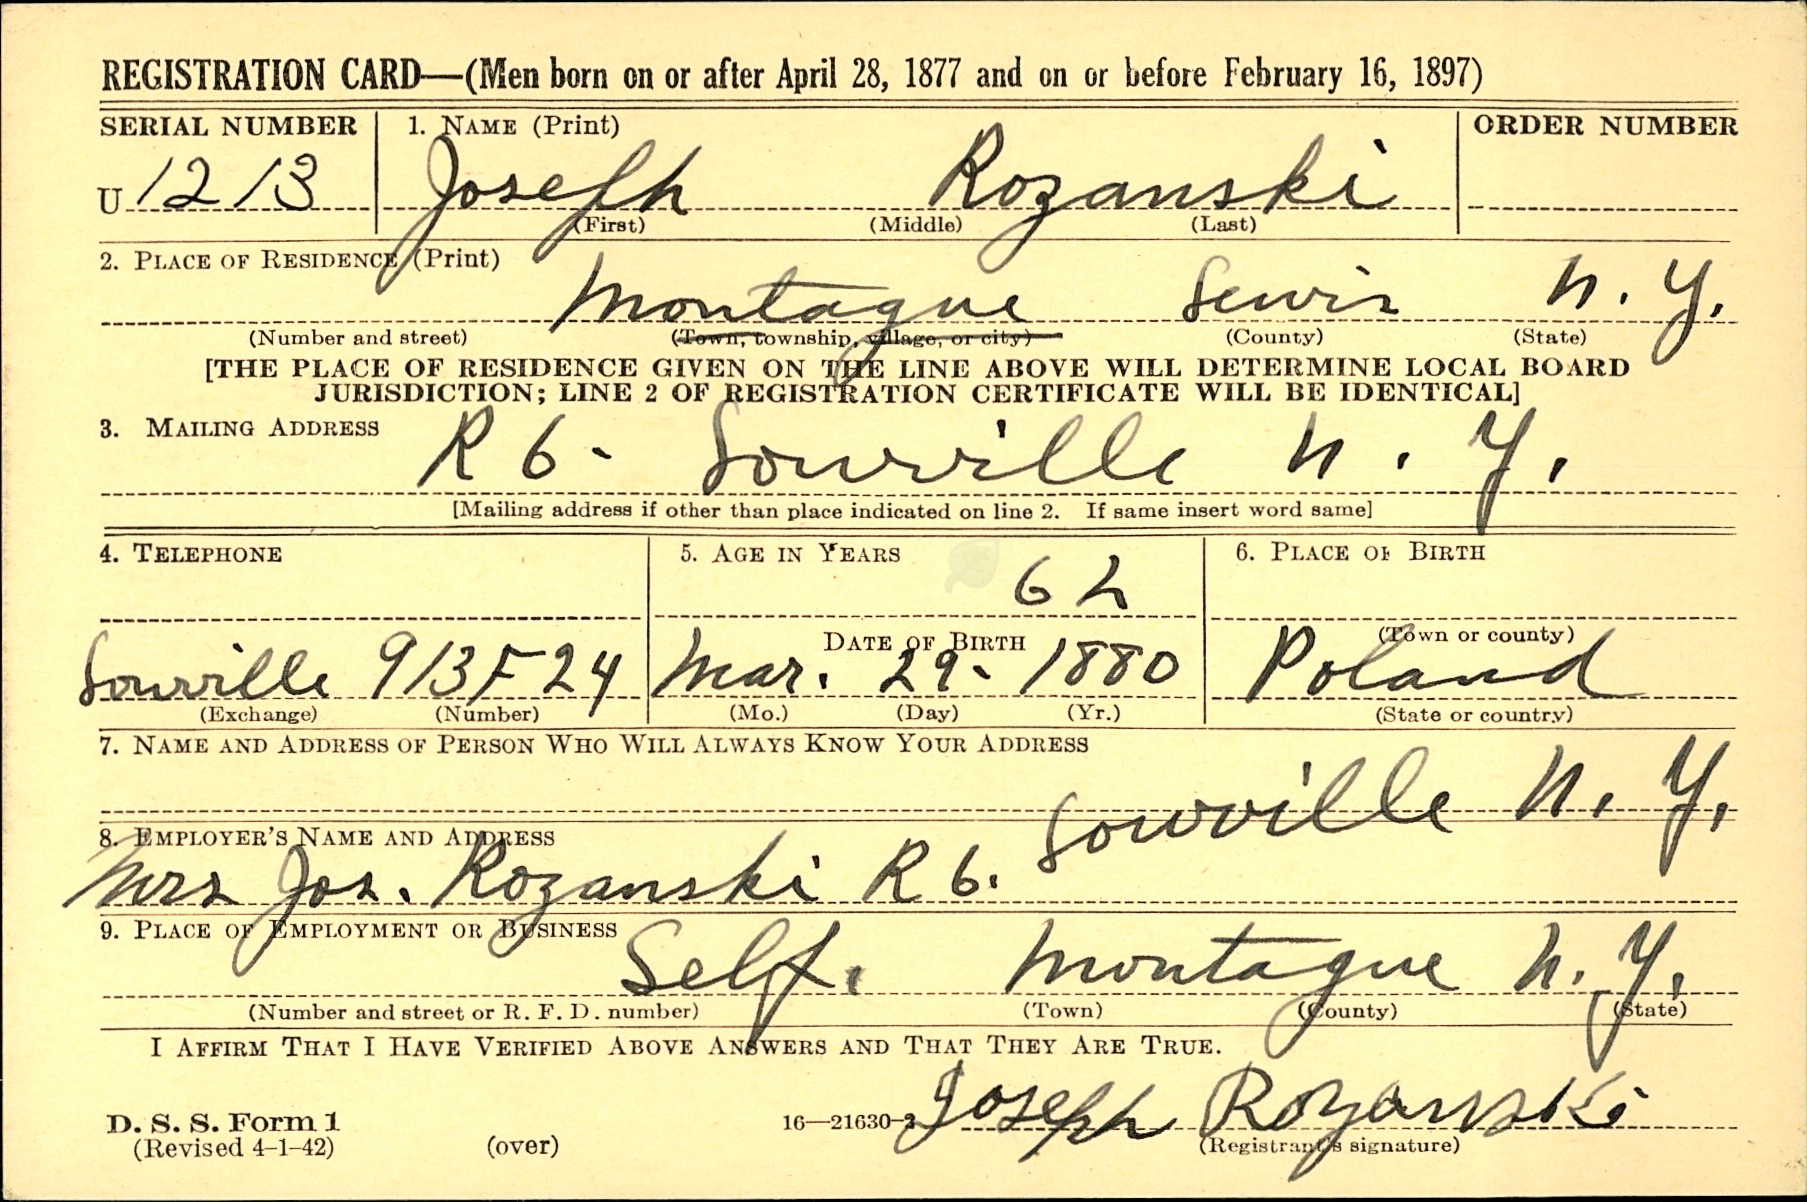 REGISTRATION CARD—(Men born on or after April 28, 1877 and on or before February 16, 1897)
SERIAL NUMBER 1. NAME (Print) ORDER NUMBER
U 1213 Joseph Rozanski
(First) (Middle) (Last)
2. PLACE OF RESIDENCE (Print)
Montague Lewis N. Y.
(Number and street) (Town, township, village, or city) (County) (State)
[THE PLACE OF RESIDENCE GIVEN ON THE LINE ABOVE WILL DETERMINE LOCAL BOARD
JURISDICTION; LINE 2 OF REGISTRATION CERTIFICATE WILL BE IDENTICAL]
3. MAILING ADDRESS
R 6- Lowville N. Y.
[Mailing address if other than place indicated on line 2. If same insert word same]
4. TELEPHONE 5. AGE IN YEARS 6. PLACE OF BIRTH
62
DATE OF BIRTH (Town or county)
Lowville 913F24 Mar. 29- 1880 Poland
(Exchange) (Number) (Mo.) (Day) (Yr.) (State or country)
7. NAME AND ADDRESS OF PERSON WHO WILL ALWAYS KNOW YOUR ADDRESS
Lowville N. Y.
8. EMPLOYER'S NAME AND ADDRESS
Mrs Jos. Rozanski R 6.
9. PLACE OF EMPLOYMENT OR BUSINESS
Self. Montague N. Y.
(Number and street or R. F. D. number) (Town) (County) (State)
I AFFIRM THAT I HAVE VERIFIED ABOVE ANSWERS AND THAT THEY ARE TRUE.
Joseph Rozanski
D. S. S. Form 1 16—21630-2
(Revised 4-1-42) (over) (Registrant's signature)